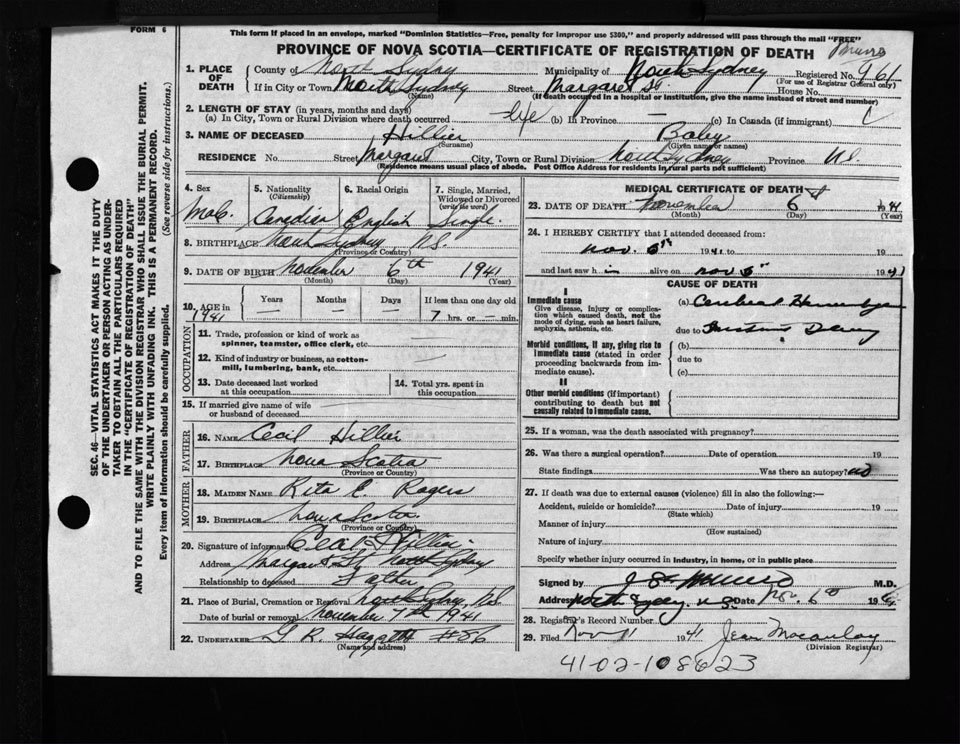 FORM 6
This form if placed in an envelope, marked "Dominion Statistics—Free, penalty for improper use $300," and properly addressed will pass through the mail "FREE"
PROVINCE OF NOVA SCOTIA—CERTIFICATE OF REGISTRATION OF DEATH
Munro
1. PLACE OF DEATH County of North Sydney Municipality of North Sydney Registered No. 961
(For use of Registrar General only)
If in City or Town North Sydney Street Margaret St. House No.
(Name) (If death occurred in a hospital or institution, give the name instead of street and number)
2. LENGTH OF STAY (in years, months and days)
(a) In City, Town or Rural Division where death occurred life (b) In Province — (c) In Canada (if immigrant)
3. NAME OF DECEASED Hillier Baby
(Surname) (Given name or names)
RESIDENCE No. Street Margaret City, Town or Rural Division North Sydney Province N.S.
(Residence means usual place of abode. Post Office Address for residents in rural parts not sufficient)
4. Sex 5. Nationality (Citizenship) 6. Racial Origin 7. Single, Married, Widowed or Divorced (write the word)
Male. Canadian English Single
8. BIRTHPLACE North Sydney N.S.
(Province or Country)
9. DATE OF BIRTH November 6th 1941
(Month) (Day) (Year)
10. AGE in 1941 Years Months Days If less than one day
— — — 7 hrs. or — min.
OCCUPATION
11. Trade, profession or kind of work as spinner, teamster, office clerk, etc.
12. Kind of industry or business, as cotton-mill, lumbering, bank, etc.
13. Date deceased last worked at this occupation 14. Total yrs. spent in this occupation
15. If married give name of wife or husband of deceased
FATHER
16. NAME Cecil Hillier
17. BIRTHPLACE Nova Scotia
(Province or Country)
MOTHER
18. MAIDEN NAME Rita E. Rogers
19. BIRTHPLACE Nova Scotia
(Province or Country)
20. Signature of informant Cecil Hillier
Address Margaret St North Sydney
Relationship to deceased Father
21. Place of Burial, Cremation or Removal North Sydney, N.S.
Date of burial or removal November 7th 1941
22. UNDERTAKER G R #86
(Name and address)
MEDICAL CERTIFICATE OF DEATH
23. DATE OF DEATH November 6 1941
(Month) (Day) (Year)
24. I HEREBY CERTIFY that I attended deceased from:
Nov. 1941 to 19
and last saw h im alive on Nov 1941
CAUSE OF DEATH
I
Immediate cause
Give disease, injury or complication which caused death, not the mode of dying, such as heart failure, asphyxia, asthenia, etc.
(a) Cerebral Hemorrhage
due to
Morbid conditions, if any, giving rise to immediate cause (stated in order proceeding backwards from immediate cause).
(b)
due to
(c)
II
Other morbid conditions (if important) contributing to death but not causally related to immediate cause.
25. If a woman, was the death associated with pregnancy?
26. Was there a surgical operation? Date of operation 19
State findings Was there an autopsy? no
27. If death was due to external causes (violence) fill in also the following:—
Accident, suicide or homicide? Date of injury 19
(State which)
Manner of injury
(How sustained)
Nature of injury
Specify whether injury occurred in industry, in home, or in public place
Signed by Munro M.D.
Address North Sydney. N.S. Date Nov. 6th 19
28. Registrar's Record Number
29. Filed Nov 11 1941 Jean Macaulay
(Division Registrar)
41-02-108623
SEC. 46—VITAL STATISTICS ACT MAKES IT THE DUTY
OF THE UNDERTAKER OR PERSON ACTING AS UNDER-
TAKER TO OBTAIN ALL THE PARTICULARS REQUIRED
IN THE "CERTIFICATE OF REGISTRATION OF DEATH"
AND TO FILE THE SAME WITH THE DIVISION REGISTRAR WHO SHALL ISSUE THE BURIAL PERMIT.
WRITE PLAINLY WITH UNFADING INK. THIS IS A PERMANENT RECORD.
Every item of information should be carefully supplied. (See reverse side for instructions.)